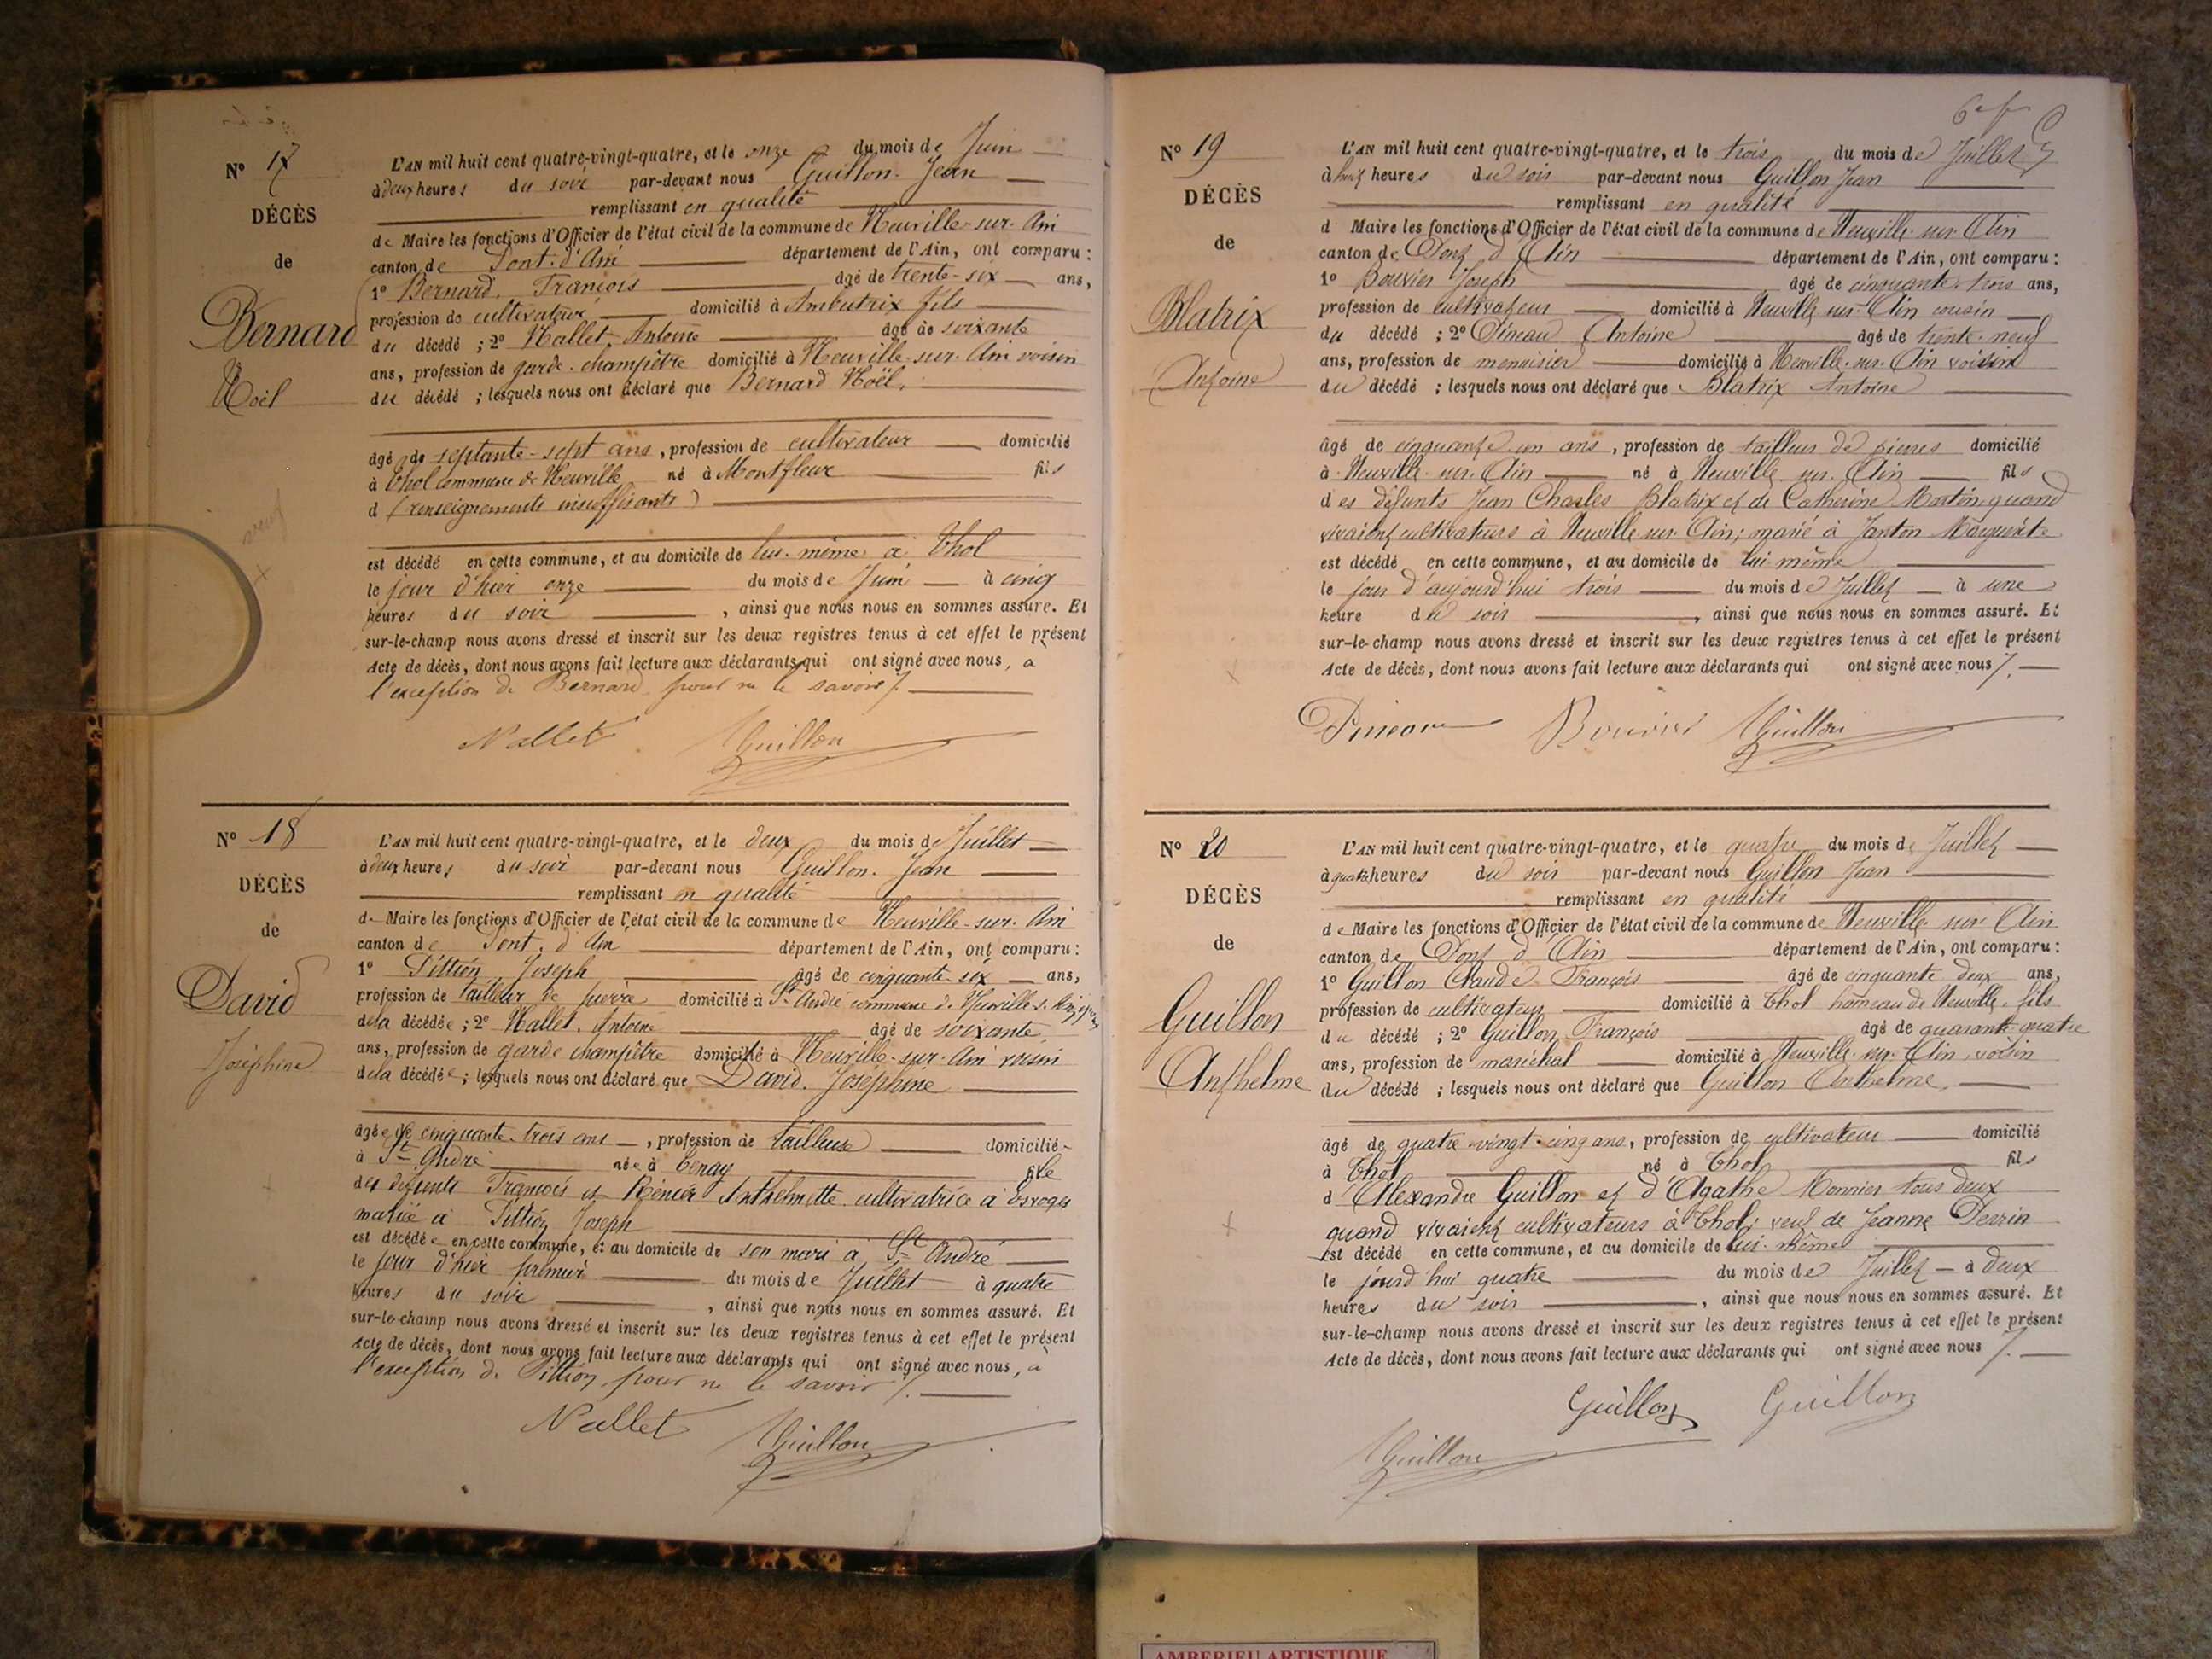 Nº 17
DÉCÈS
de
Bernard
Noël
L'AN mil huit cent quatre-vingt-quatre, et le onze du mois de Juin
à deux heures du soir par-devant nous Guillon Jean
remplissant en qualité
de Maire les fonctions d'Officier de l'état civil de la commune de Neuville-sur-Ain
canton de Pont-d'Ain département de l'Ain, ont comparu :
1º Bernard François âgé de trente-six ans,
profession de cultivateur domicilié à Ambutrix fils
du décédé ; 2º Nallet Antoine âgé de soixante
ans, profession de garde-champêtre domicilié à Neuville-sur-Ain voisin
du décédé ; lesquels nous ont déclaré que Bernard Noël,
âgé de septante-sept ans, profession de cultivateur domicilié
à Thol commune de Neuville né à Montfleur fils
d (renseignements insuffisants)
est décédé en cette commune, et au domicile de lui-même à Thol
le jour d'hier onze du mois de Juin à cinq
heures du soir, ainsi que nous nous en sommes assuré. Et
sur-le-champ nous avons dressé et inscrit sur les deux registres tenus à cet effet le présent
Acte de décès, dont nous avons fait lecture aux déclarants qui ont signé avec nous, à
l'exception de Bernard pour ne le savoir /.
Nallet Guillon
Nº 18
DÉCÈS
de
David
Joséphine
L'AN mil huit cent quatre-vingt-quatre, et le deux du mois de Juillet
à deux heures du soir par-devant nous Guillon Jean
remplissant en qualité
de Maire les fonctions d'Officier de l'état civil de la commune de Neuville-sur-Ain
canton de Pont-d'Ain département de l'Ain, ont comparu :
1º Pittion Joseph âgé de cinquante-six ans,
profession de tailleur de pierre domicilié à St André commune de Neuville s. Ain
de la décédée ; 2º Nallet Antoine âgé de soixante
ans, profession de garde champêtre domicilié à Neuville-sur-Ain voisin
de la décédée ; lesquels nous ont déclaré que David Joséphine
âgée de cinquante-trois ans, profession de tailleuse domiciliée
à St André née à Tenay fille
des défunts François et Anthelmette cultivatrice à
mariée à Pittion Joseph
est décédée en cette commune, et au domicile de son mari à St André
le jour d'hier premier du mois de Juillet à quatre
heures du soir, ainsi que nous nous en sommes assuré. Et
sur-le-champ nous avons dressé et inscrit sur les deux registres tenus à cet effet le présent
Acte de décès, dont nous avons fait lecture aux déclarants qui ont signé avec nous, à
l'exception de Pittion pour ne le savoir /.
Nallet Guillon
Nº 19
DÉCÈS
de
Blatrix
Antoine
L'AN mil huit cent quatre-vingt-quatre, et le trois du mois de Juillet
à huit heures du soir par-devant nous Guillon Jean
remplissant en qualité
d Maire les fonctions d'Officier de l'état civil de la commune de Neuville-sur-Ain
canton de Pont d'Ain département de l'Ain, ont comparu :
1º Bouvier Joseph âgé de cinquante-trois ans,
profession de cultivateur domicilié à Neuville-sur-Ain cousin
du décédé ; 2º Pineau Antoine âgé de trente-neuf
ans, profession de menuisier domicilié à Neuville-sur-Ain voisin
du décédé ; lesquels nous ont déclaré que Blatrix Antoine
âgé de cinquante-un ans, profession de tailleur de pierres domicilié
à Neuville-sur-Ain né à Neuville-sur-Ain fils
des défunts Jean Charles Blatrix et de Catherine Martin quand
vivaient cultivateurs à Neuville-sur-Ain; marié à Janton Marguerite
est décédé en cette commune, et au domicile de lui-même
le jour d'aujourd'hui trois du mois de Juillet à une
heure du soir, ainsi que nous nous en sommes assuré. Et
sur-le-champ nous avons dressé et inscrit sur les deux registres tenus à cet effet le présent
Acte de décès, dont nous avons fait lecture aux déclarants qui ont signé avec nous /.
Pineau Bouvier Guillon
Nº 20
DÉCÈS
de
Guillon
Anthelme
L'AN mil huit cent quatre-vingt-quatre, et le quatre du mois de Juillet
à quatre heures du soir par-devant nous Guillon Jean
remplissant en qualité
de Maire les fonctions d'Officier de l'état civil de la commune de Neuville sur Ain
canton de Pont d'Ain département de l'Ain, ont comparu :
1º Guillon Claude François âgé de cinquante deux ans,
profession de cultivateur domicilié à Thol hameau de Neuville fils
du décédé ; 2º Guillon François âgé de quarante-quatre
ans, profession de maréchal domicilié à Neuville-sur-Ain voisin
du décédé ; lesquels nous ont déclaré que Guillon Anthelme,
âgé de quatre-vingt-cinq ans, profession de cultivateur domicilié
à Thol né à Thol fils
d'Alexandre Guillon et d'Agathe Monnier tous deux
quand vivaient cultivateurs à Thol; veuf de Jeanne Perrin
est décédé en cette commune, et au domicile de lui-même
le jourd'hui quatre du mois de Juillet à deux
heures du soir, ainsi que nous nous en sommes assuré. Et
sur-le-champ nous avons dressé et inscrit sur les deux registres tenus à cet effet le présent
Acte de décès, dont nous avons fait lecture aux déclarants qui ont signé avec nous /.
Guillon Guillon
Guillon
AMBERIEU ARTISTIQUE